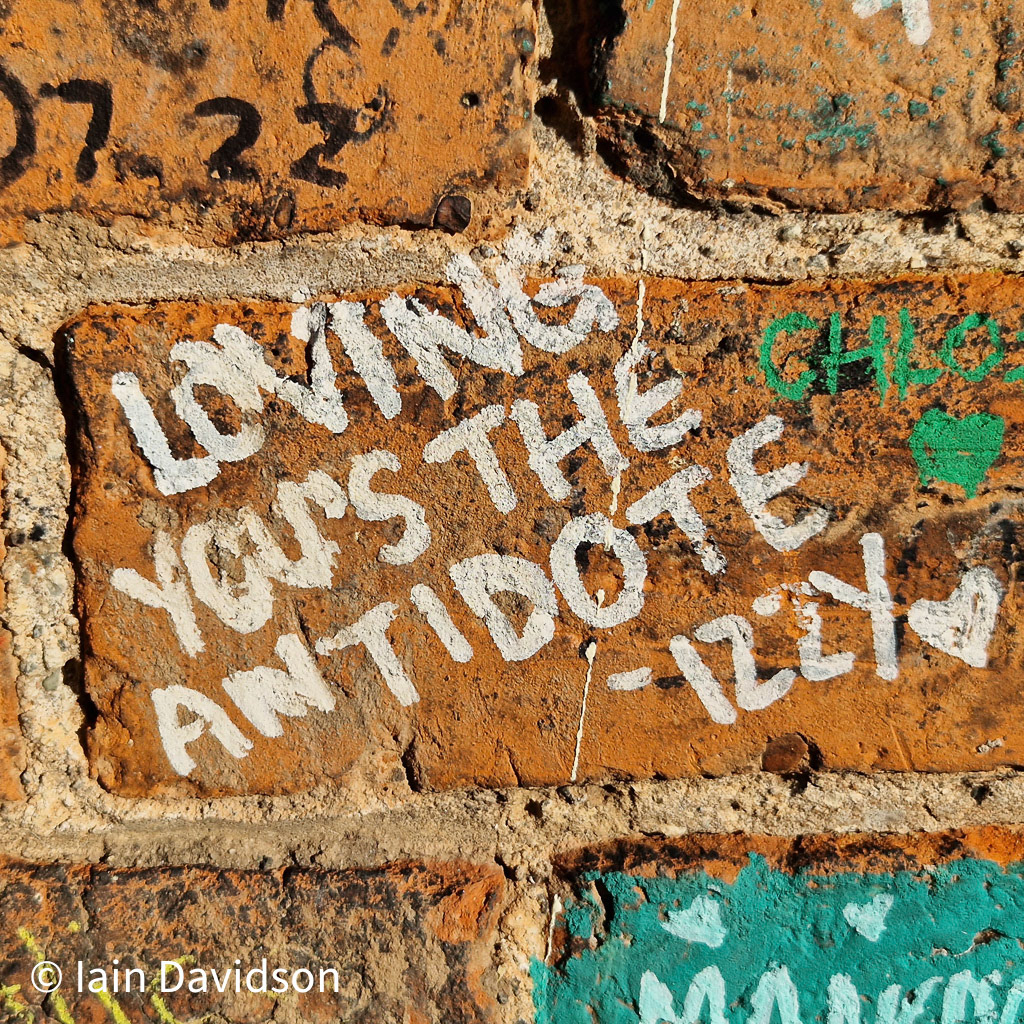 07.22
LOVING
YOU'S THE
ANTIDOTE
-IZZY
CHLO
© Iain Davidson